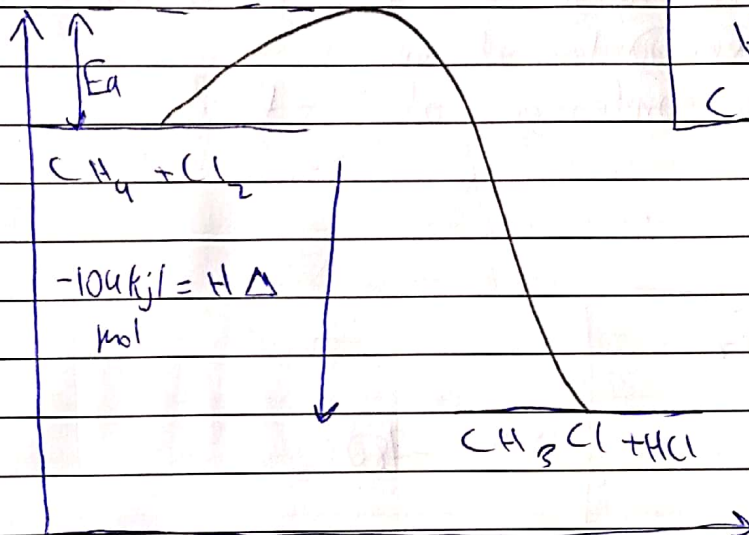 Ea
C
CH₄ + Cl₂
-104kj/ = H Δ
mol
CH₃Cl + HCl